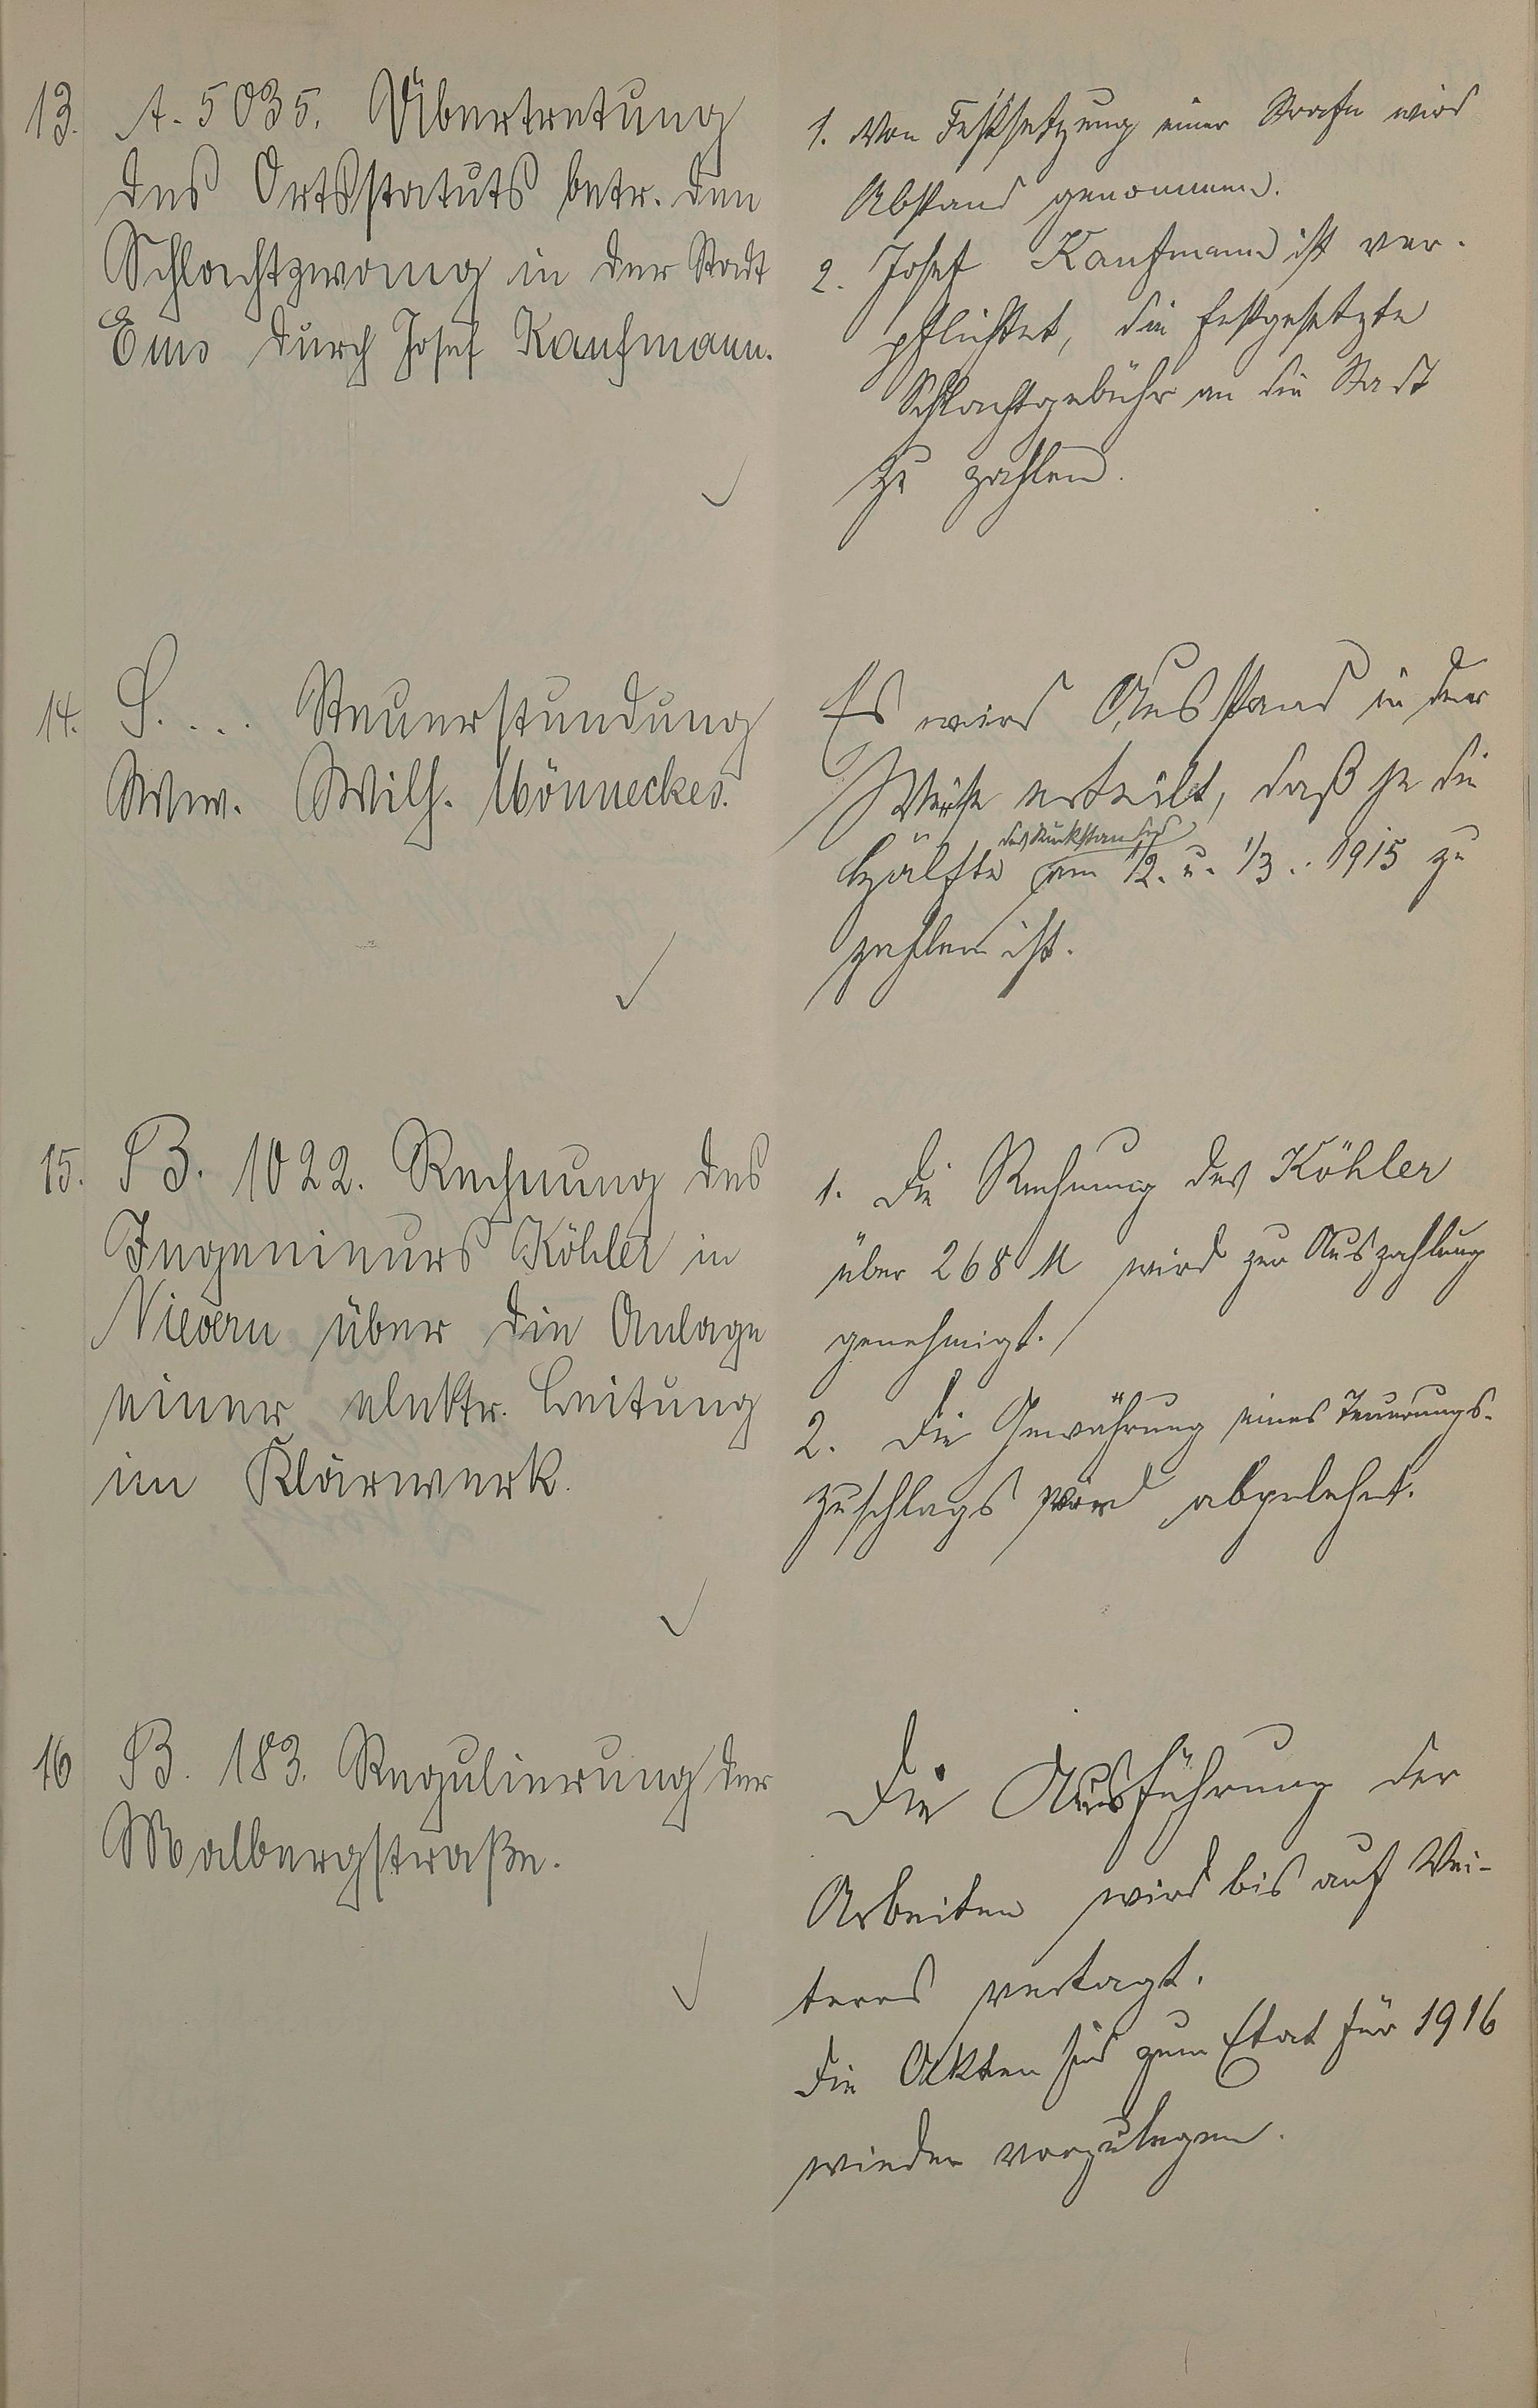 13. A. 5035. Übertretung
des Ortsstatuts betr. den
Schlachtzwang in der Stadt
Ems durch Josef Kaufmann.
1. Von Festsetzung einer Strafe wird
Abstand genommen.
2. Josef Kaufmann ist ver-
pflichtet, die festgesetzte
Schlachtgebühr an die Stadt
zu zahlen.
14. S. ... Steuerstundung
Ww. Wilh. Mönneckes.
Es wird Ausstand in der
Weise erteilt, daß je die
des Rückstandes
Hälfte am 1/2. u. 1/3. 1915 zu
zahlen ist.
15. B. 1022. Rechnung des
Ingenieurs Köhler in
Nievern über die Anlage
einer elektr. Leitung
im Klärwerk.
1. Die Rechnung des Köhler
über 268 M wird zur Auszahlung
genehmigt.
2. Die Gewährung eines Teuerungs-
zuschlags wird abgelehnt.
16 B. 183. Regulierung der
Malbergstraße.
Die Ausführung der
Arbeiten wird bis auf Wei-
teres vertagt.
Die Akten sind zum Etat für 1916
wieder vorzulegen.